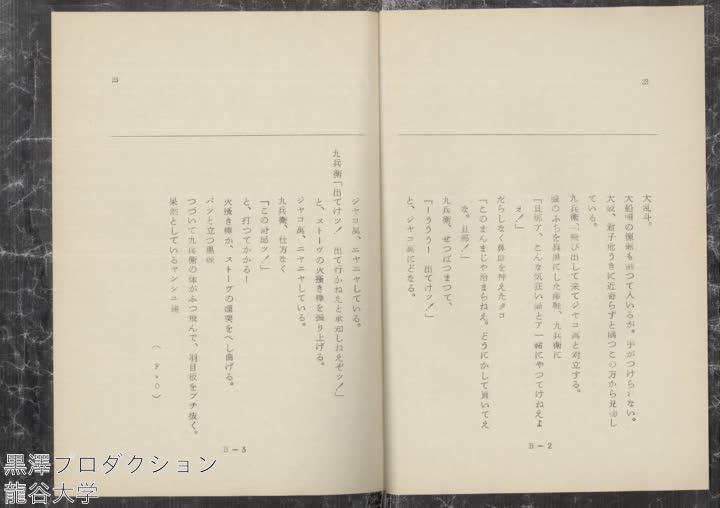 23
大乱斗。
大船頭の傳蔵も面つて人いるが、手がつけられない。
大政、君子危うきに近寄らずと隅つこの方から見廻し
ている。
九兵衛、飛び出して来てジャコ萬と対立する。
眼のふちを真黒にした 九兵衛に
「旦那ア、こんな気狂い 一緒にやつてけねえよ
ぇ！」
だらしなく鼻血を押えたタコ
「このまんまじや治まらねえ。どうにかして貰いてえ
な。旦那！」
九兵衛、せつぱつまつて、
「ーうううー 出てけツ！」
と、ジャコ萬にどなる。
B－2
23
ジャコ萬、ニヤニヤしている。
九兵衛「出てけツ！ 出て行かねえと承知しねえぞツ！」
と、ストーヴの火掻き棒を振り上げる。
ジャコ萬、ニヤニヤしている。
九兵衛、仕方なく
「この野郎ツ！」
と、打つてかかる！
火掻き棒が、ストーヴの煙突をへし曲げる。
パツと立つ黒煙
つづいて九兵衛の体がふつ飛んで、羽目板をブチ抜く。
呆然としているヤンシユ達
（F・O）
B－3
黒澤プロダクション
龍谷大学